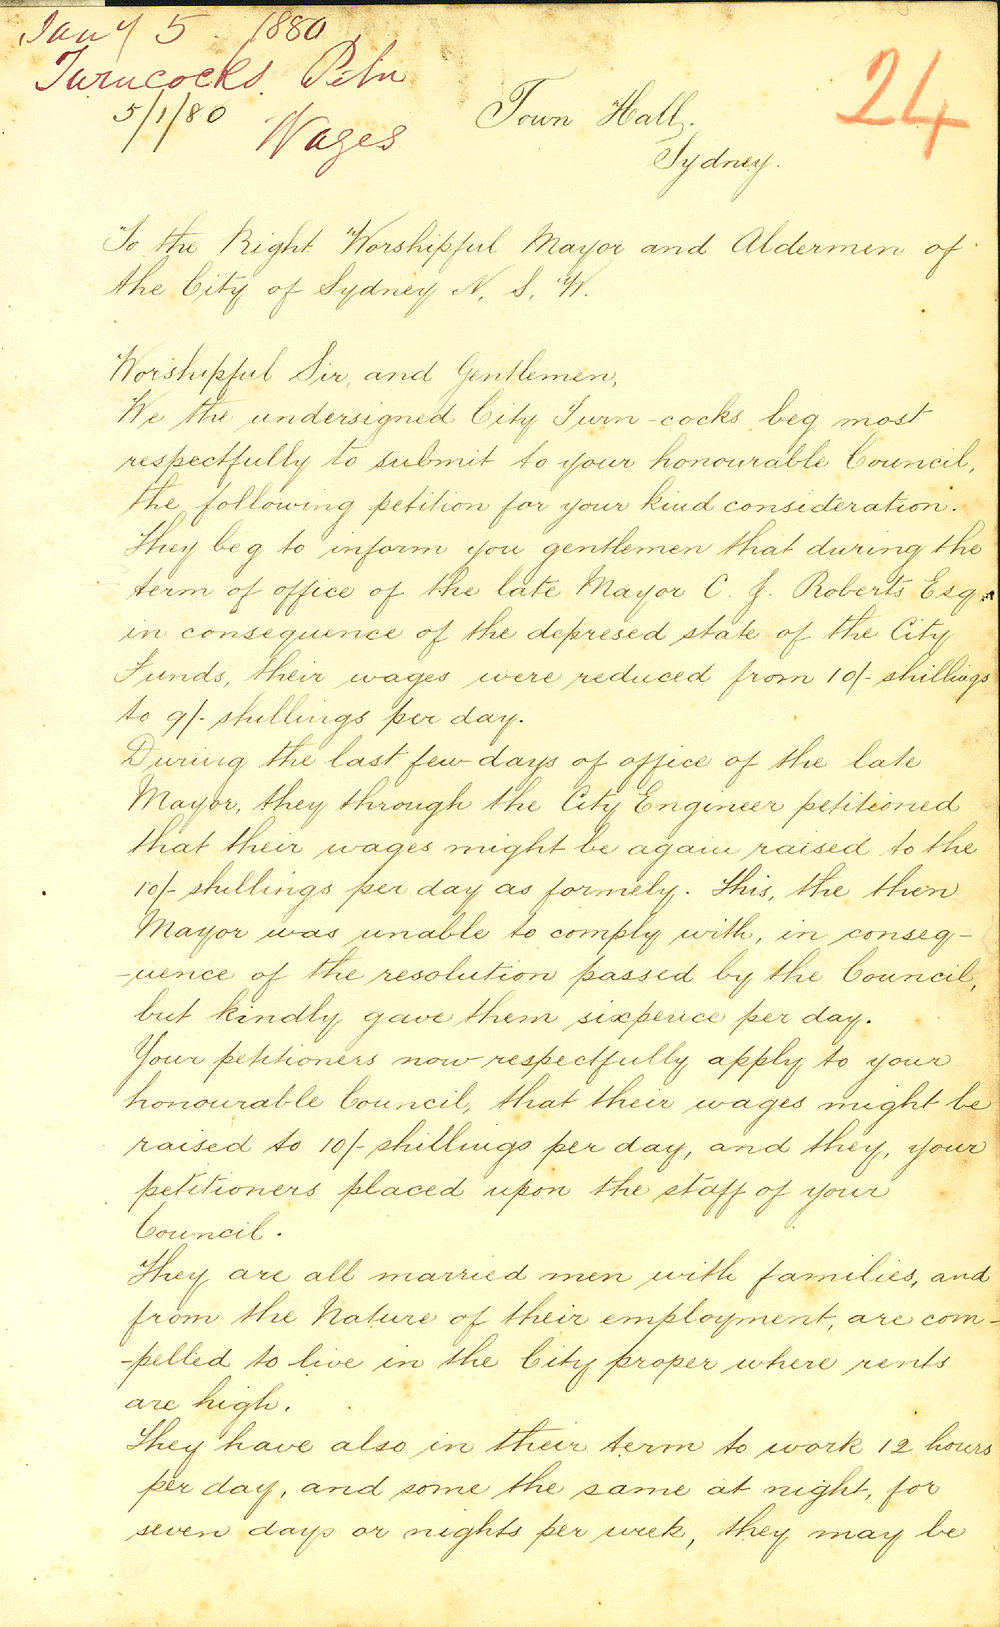 Jany 5 1880
Turncocks Petn
5/1/80
Wages
24
Town Hall.
Sydney.
To the Right Worshipful Mayor and Aldermen of
the City of Sydney N. S. W.
Worshipful Sir, and Gentlemen,
We the undersigned City Turn-cocks beg most
respectfully to submit to your honourable Council,
the following petition for your kind consideration.
They beg to inform you gentlemen that during the
term of office of the late Mayor C. J. Roberts Esq.
in consequence of the depresed state of the City
Funds, their wages were reduced from 10/- shillings
to 9/- shillings per day.
During the last few days of office of the late
Mayor, they through the City Engineer petitioned
that their wages might be again raised to the
10/- shillings per day as formely. This, the then
Mayor was unable to comply with, in conseq-
-uence of the resolution passed by the Council,
but kindly gave them sixpence per day.
Your petitioners now respectfully apply to your
honourable Council, that their wages might be
raised to 10/- shillings per day, and they, your
petitioners placed upon the staff of your
Council.
They are all married men with families, and
from the Nature of their employment, are com-
-pelled to live in the City proper where rents
are high.
They have also in their term to work 12 hours
per day, and some the same at night, for
seven days or nights per week, they may be